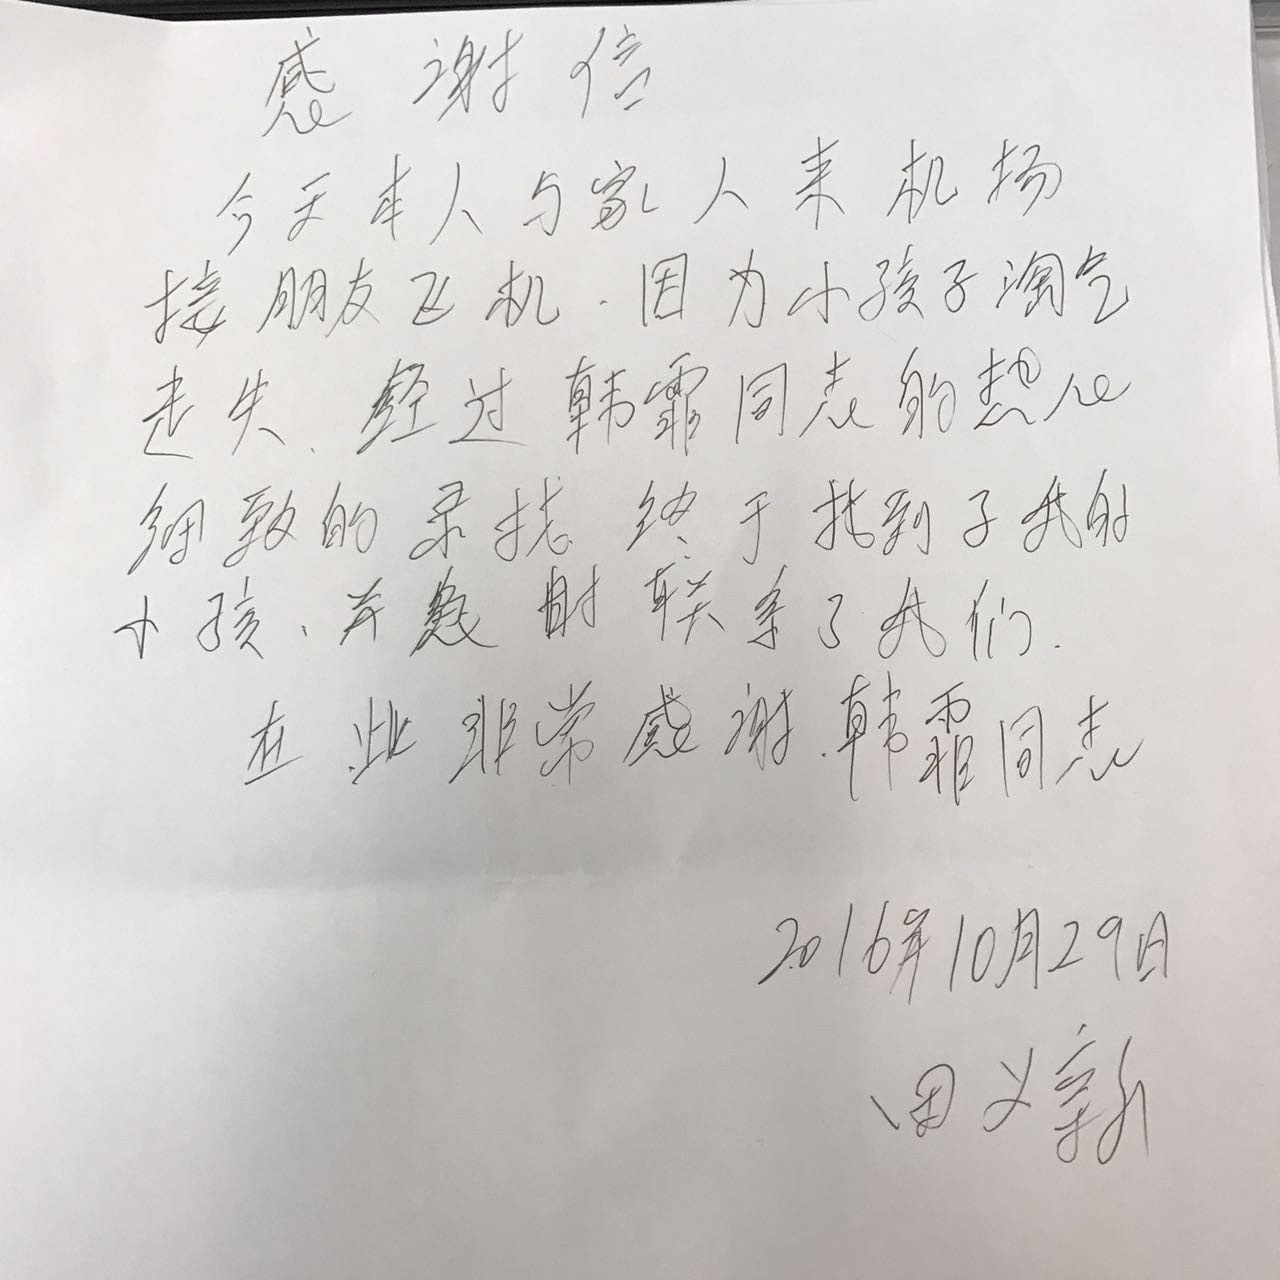 感谢信
今天本人与家人来机场
接朋友飞机.因为小孩子淘气
走失.经过韩霏同志的热心
细致的寻找.终于找到了我的
小孩、并及时联系了我们.
在此非常感谢.韩霏同志
2016年10月29日
田义新